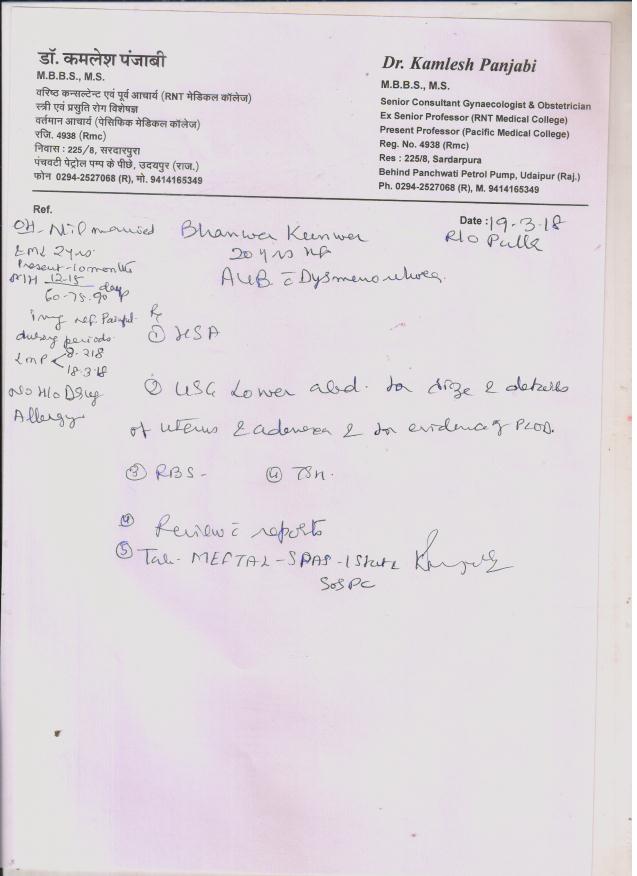 डॉ. कमलेश पंजाबी
M.B.B.S., M.S.
वरिष्ठ कन्सल्टेन्ट एवं पूर्व आचार्य (RNT मेडिकल कॉलेज)
स्त्री एवं प्रसुति रोग विशेषज्ञ
वर्तमान आचार्य (पेसिफिक मेडिकल कॉलेज)
रजि. 4938 (Rmc)
निवास : 225/8, सरदारपुरा
पंचवटी पेट्रोल पम्प के पीछे, उदयपुर (राज.)
फोन 0294-2527068 (R), मो. 9414165349
Dr. Kamlesh Panjabi
M.B.B.S., M.S.
Senior Consultant Gynaecologist & Obstetrician
Ex Senior Professor (RNT Medical College)
Present Professor (Pacific Medical College)
Reg. No. 4938 (Rmc)
Res : 225/8, Sardarpura
Behind Panchwati Petrol Pump, Udaipur (Raj.)
Ph. 0294-2527068 (R), M. 9414165349
Ref.
Date : 19-3-18
R/o
OH - Nil married
2 yrs
Present - 10 months
MH 12-15 days
60-75-90
Painful
during periods
LMP 18.3.18
No H/o Drug
Allergy
Bhanwer Kunwer
20 yrs
AUB c̄ Dysmenorrhoea
Rx
①
② USG Lower abd. for size & details
of uterus & adenexa & for evidence of PCOD.
③ RBS - ④ TSH.
④ Review c̄ reports
⑤ Tab- MEFTAL-SPAS-1 stat &
SOS PC